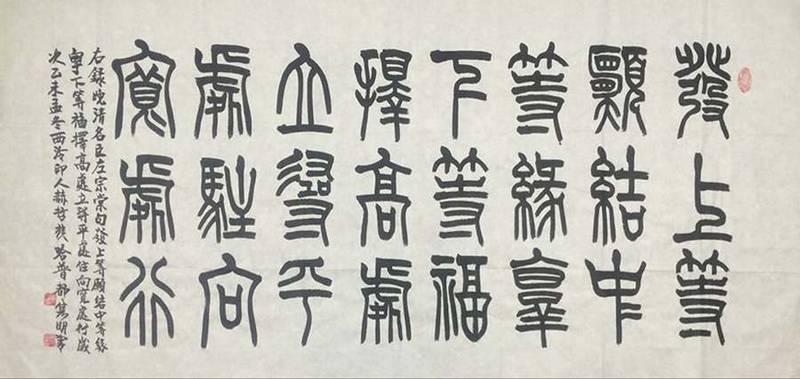 發上等
願結中
等緣享
下等福
擇高處
立尋平
處駐向
寬處行
右録晚清名臣左宗棠句發上等願結中等緣
享下等福擇高處立尋平處住向寬處行歲
次乙未孟冬西泠印人赫哲族哈普都雋明書